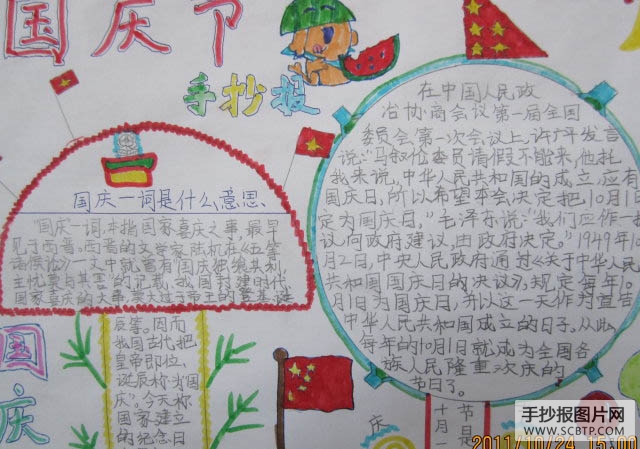 国庆节
手抄报
国庆一词是什么意思
国庆一词,本指国家喜庆之事,最早
见于西晋。西晋的文学家陆机在《五等
诸侯论》一文中就曾有国庆
主忧
的记载、我国封建时代、
国家喜庆的大事,
庆等。因而
我国古代把
皇帝即位、
诞辰称为国
庆。今天称
国家建立
的纪念日
国
庆
在中国人民政
治协商会议第一届全国
委员会第一次会议上,许广平发言
说:"马叙伦委员请假不能来,他托
我来说,中华人民共和国的成立,应有
国庆日,所以希望本会决定把10月1
定为国庆日。"毛泽东说"我们应作一提
议,向政府建议,由政府决定。"1949年10
月2日,中央人民政府通过《关于中华人民
共和国国庆日的决议》,规定每年10
月1日为国庆日,并以这一天作为宣告
中华人民共和国成立的日子,从此
每年的10月1日就成为全国各
族人民隆重欢庆的
节日了。
庆
节是
十月一
手抄报图片网
WWW.SCBTP.COM
2011/10/24 15:00